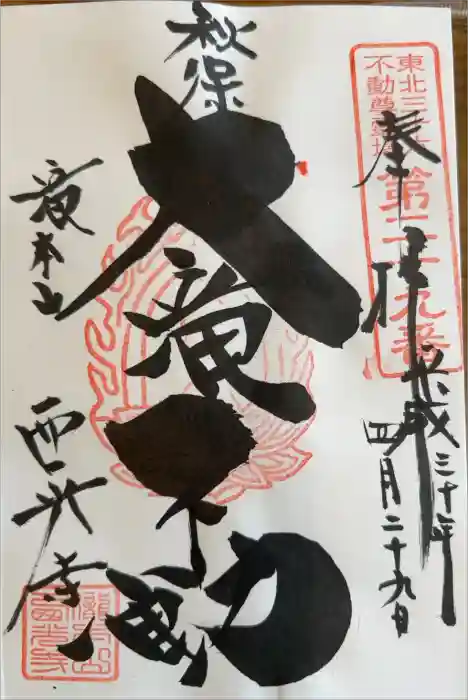 奉拝
平成三十年
四月二十九日
東北三十六
不動尊霊場
第二十九番
秋保
大滝不動
滝本山
西光寺